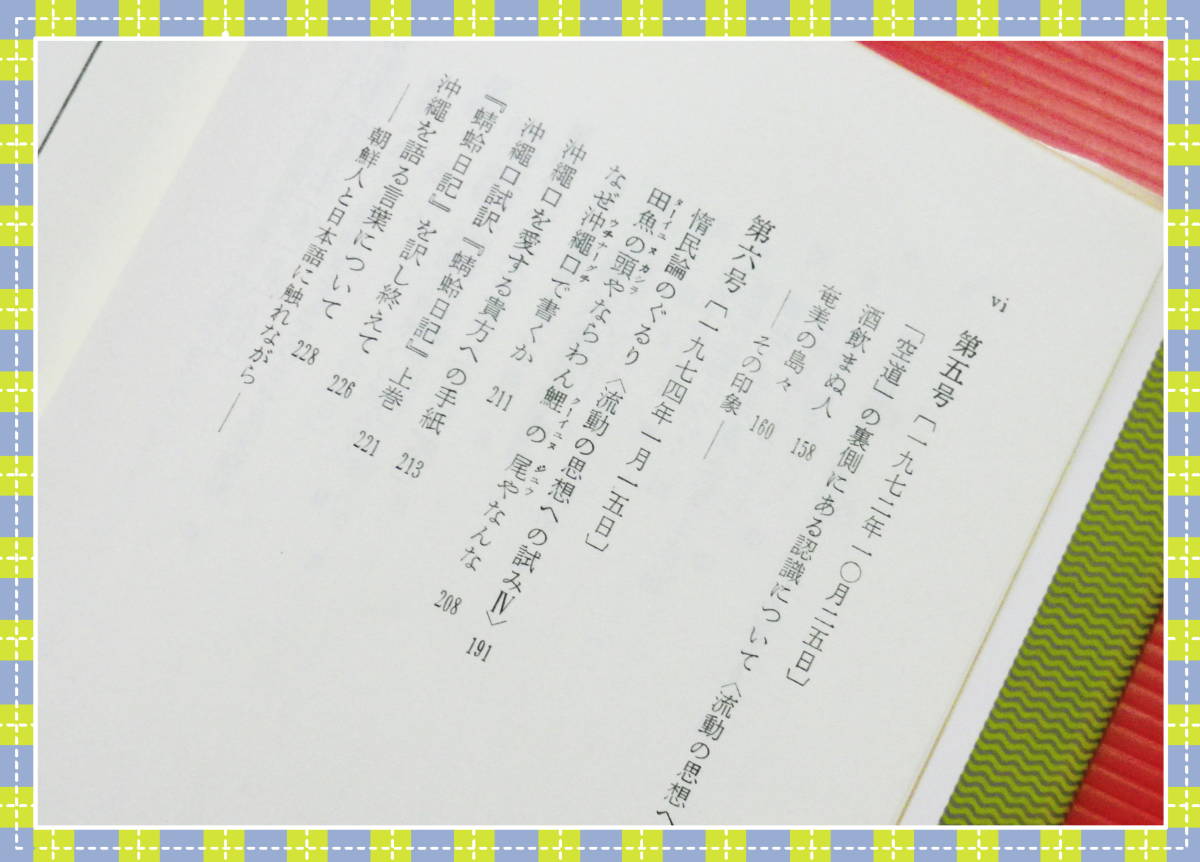 vi
第五号［一九七二年一〇月二五日］
「空道」の裏側にある認識について〈流動の思想へ
酒飲まぬ人 158
奄美の島々 160
――その印象――
第六号［一九七四年一月一五日］
惰民論のぐるり〈流動の思想への試みⅣ〉 191
田魚の頭やならわん鯉の尾やなんな 208
ターイユヌ カジラ クーイユヌ ジュウ
なぜ沖繩口で書くか 211
ウチナーグチ
沖繩口を愛する貴方への手紙 213
沖繩口試訳『蜻蛉日記』上巻 221
『蜻蛉日記』を訳し終えて 226
沖繩を語る言葉について 228
――朝鮮人と日本語に触れながら――